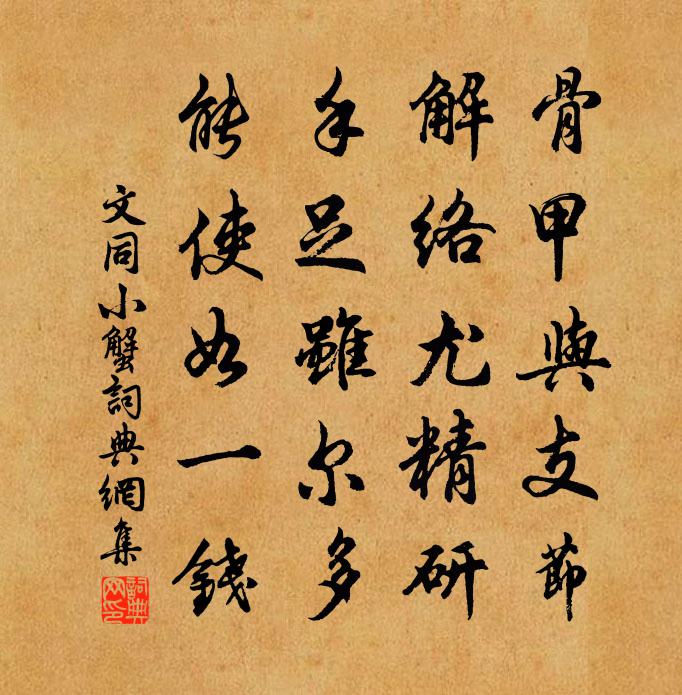 骨甲與支節
解絡尤精研
手足雖尔多
能使如一錢
文同小蟹詞典網集
詞典网印